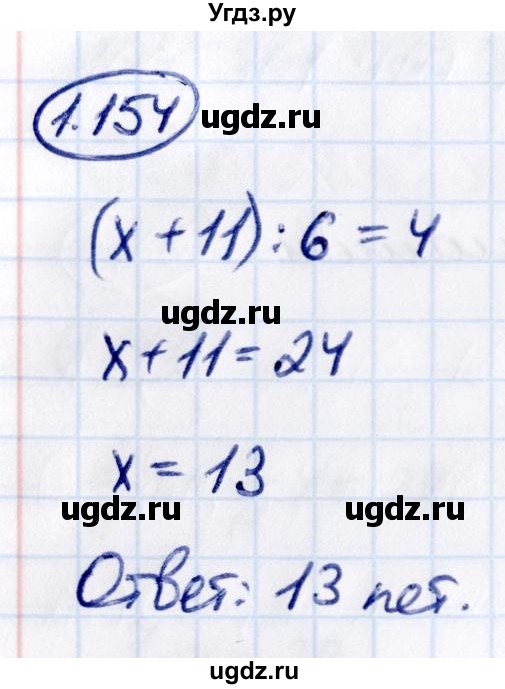 Угдз.ру
1.154
ugdz.ru
(x + 11) : 6 = 4
ugdz.ru
x + 11 = 24
x = 13
ugdz.ru ugdz.ru
Ответ: 13 лет.
ugdz.ru